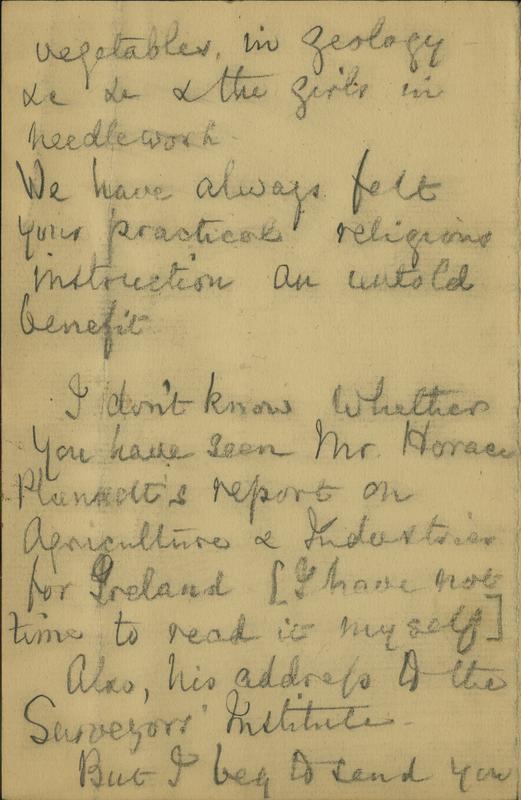 vegetables, in geology
&c &c & the girls in
needlework.
We have always felt
your practical religious
instruction an untold
benefit
I don't know whether
you have seen Mr. Horace
Plunkett's report on
Agriculture & Industries
for Ireland [I have not
time to read it myself]
Also, his address to the
Surveyors' Institute.
But I beg to send you